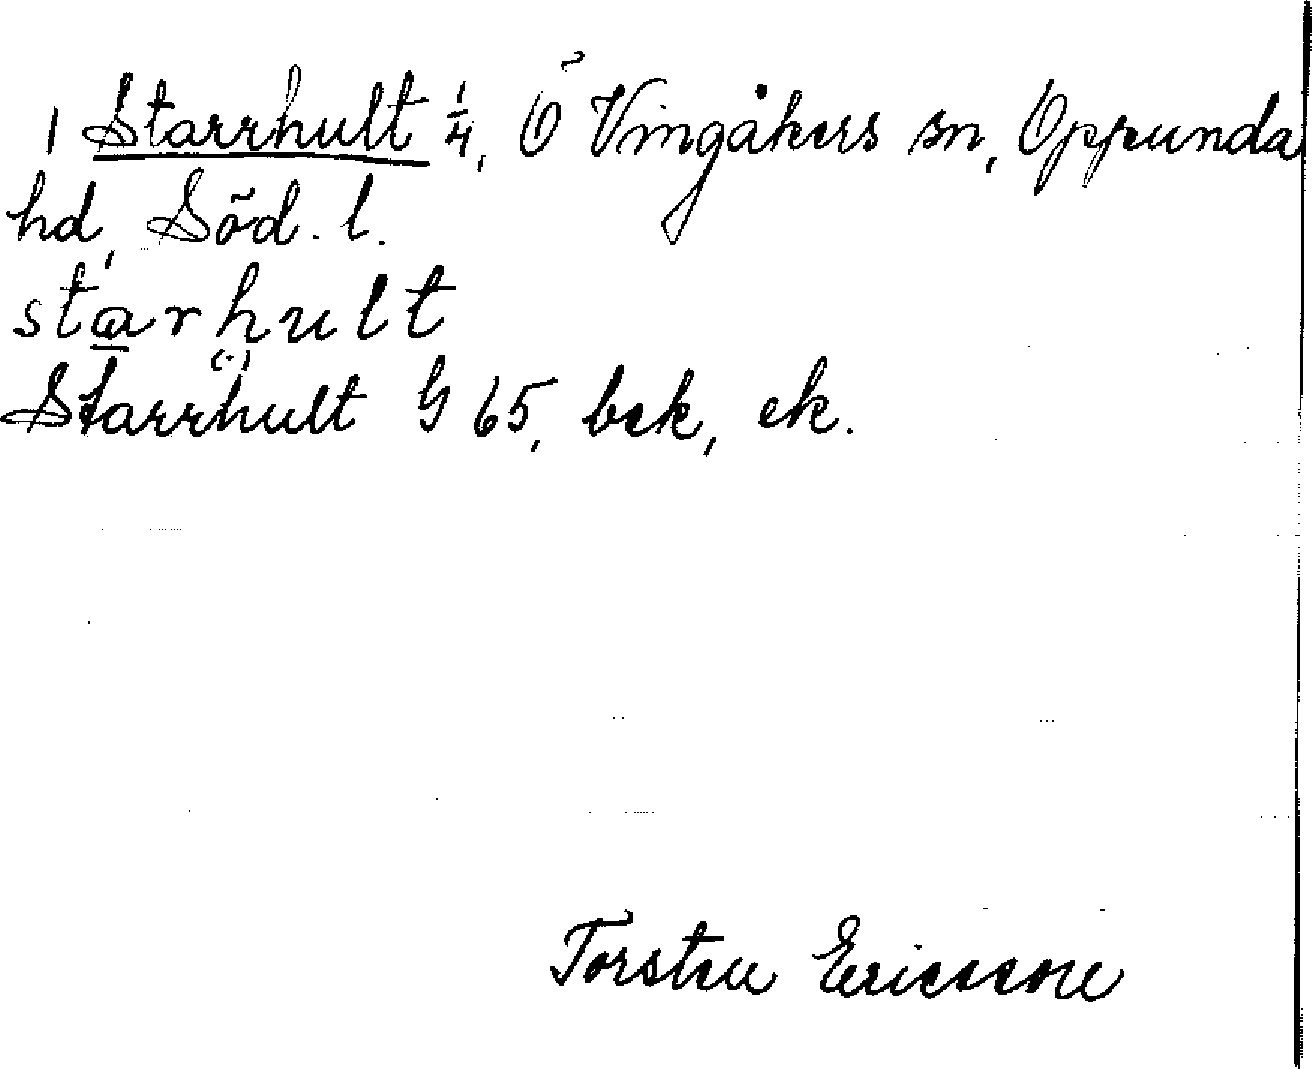 1 Starrhult 1/4, Ö Vingåkers sn, Oppunda
hd, Söd. l.
starhult
(.)
Starrhult G 65, bek, ek.
Torsten Ericsson